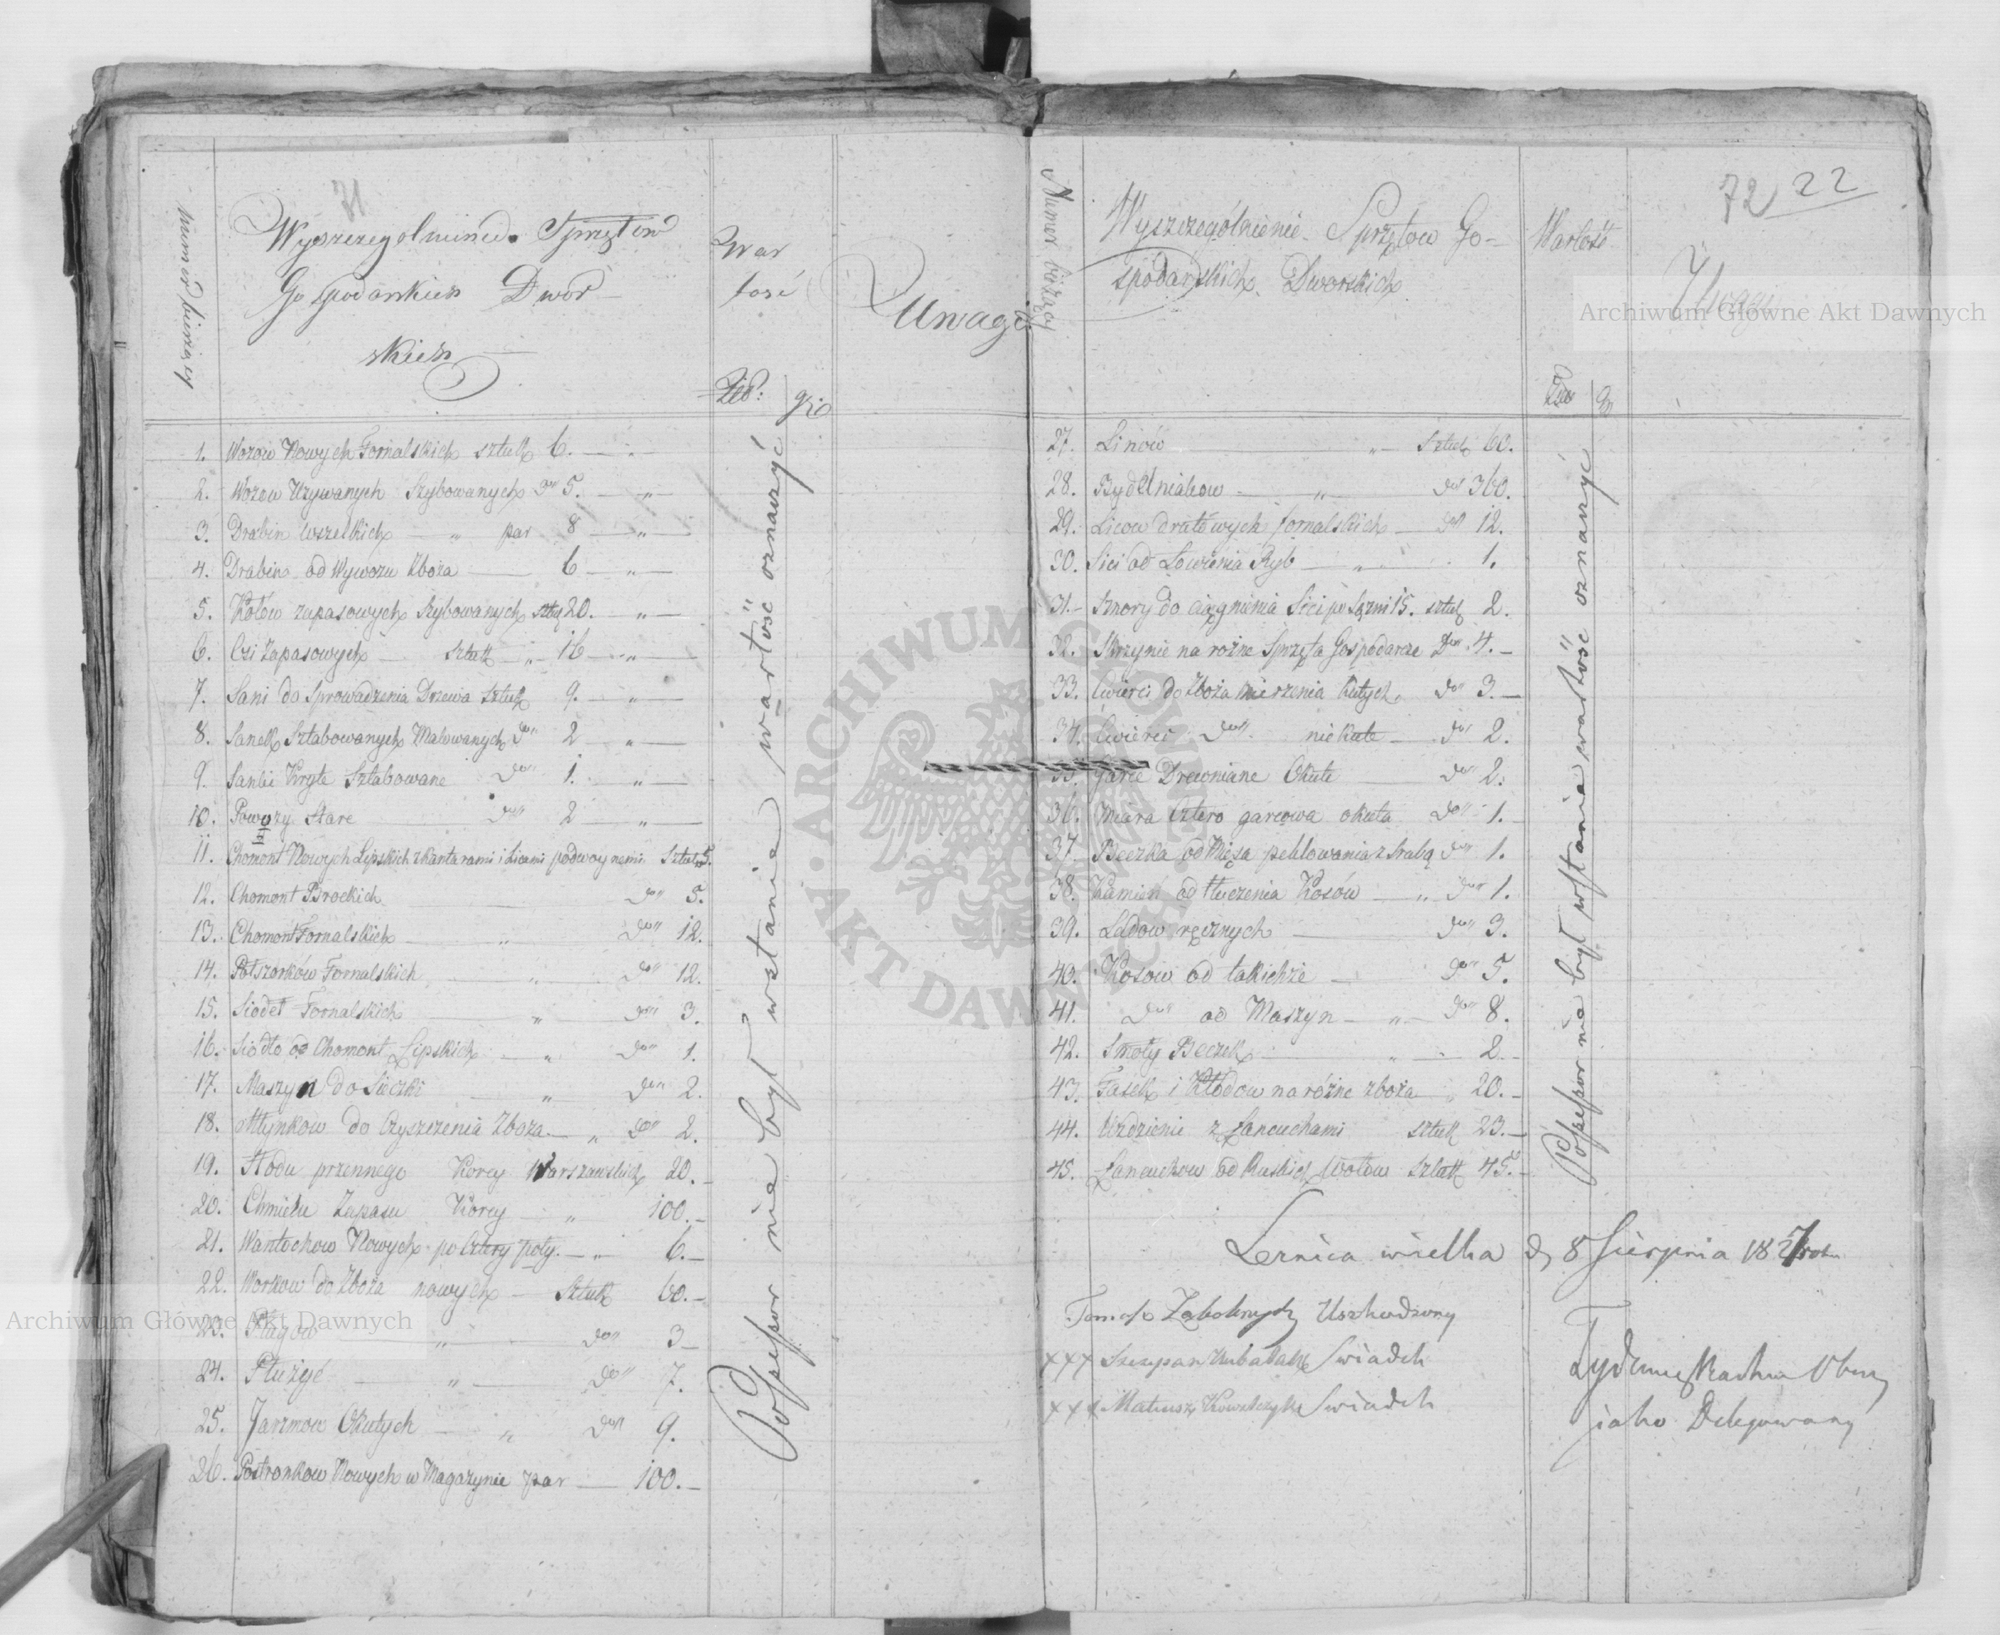 71
Numer bieżący
Wyszczegolnienie Sprzętow
Gospodarskich Dwor
skich
War
tość
Złp: gro
Uwagi
1. Wozow Nowych Fornalskich sztuk 6. — „
2. Wozow Używanych Szybowanych do 5. — „ —
3. Drabin wszelkich — „ par 8 — „ —
4. Drabin od Wywozu Zboża — 6 — „ —
5. Kołów zapasowych Szybowanych sztuk 20. — „ —
6. Osi Zapasowych — sztuk — „ 16 — „ —
7. Sani do Sprowadzenia Drzewa Sztuk 9. — „ —
8. Sanek Sztabowanych Malowanych do 2 — „ —
9. Sanki Kryte Sztabowane do 1. — „ —
10. Powozy Stare do 2 — „ —
11. Chomont Nowych Lipskich z kantarami i Licami podwoynemi Sztuk 5.
12. Chomont Brockich — do 5.
13. Chomont Fornalskich — „ do 12.
14. Połszorków Fornalskich — „ do 12.
15. Siodeł Fornalskich — „ do 3.
16. Siodło od Chomont Lipskich — „ do 1.
17. Maszyn do Sieczki — „ do 2.
18. Młynkow do Czyszczenia Zboża — „ do 2.
19. Słodu przennego Korcy Warszawskich 20. —
20. Chmielu Zapasu Korcy — „ 100. —
21. Wantochow Nowych po cztery poły. — „ 6. —
22. Workow do Zboża nowych — Sztuk 60. —
23. Pługow — „ — do 3 —
24. Płużyc — „ — do 7.
25. Jarzmow Okutych — „ do 9.
26. Postronkow Nowych w Magazynie par — 100. —
Possessor nie był wstanie wartość oznaczyć
72 22
Numer bieżący
Wyszczególnienie Sprzętow Go-
spodarskich Dworskich
Wartość
Złp gr
Uwagi
27. Linów — „ — Sztuk 60.
28. — „ do 360.
29. Licow drutowych fornalskich — do 12.
30. Sici od Łowienia Ryb — „ — 1.
31. Sznory do ciągnienia Sici po Sążni 15. sztuk 2.
32. Skrzynie na rożne Sprzęta Gospodarcze do 4. —
33. Cwierci do Zboża mierzenia Kutych do 3. —
34. Cwierci do niekute — do 2.
35. Garce Drewniane Okute — do 2.
36. Miara cztero garcowa okuta do 1. —
37. Beczka od Mięsa peklowania z srabą do 1.
38. Kamień od tłuczenia Kosów — „ do 1.
39. Ladow ręcznych — do 3.
40. Kosow od takichże — do 5.
41. do od Maszyn — „ — do 8.
42. Smoły Beczek — „ — 2. —
43. Fasek i Kłodow na różne zboża — 20. —
44. Uzdzienic z Łancuchami sztuk 23. —
45. Łancuchow od Ruskich wołow Sztuk 45. —
Possessor nie był wstanie wartość oznaczyć
Lernica wielka d. 8 Sierpnia 1827 roku
xxx Szczepan Świadek
xxx Mateusz Świadek
jako Delegowany
ARCHIWUM GŁÓWNE AKT DAWNYCH
Archiwum Główne Akt Dawnych
Archiwum Główne Akt Dawnych